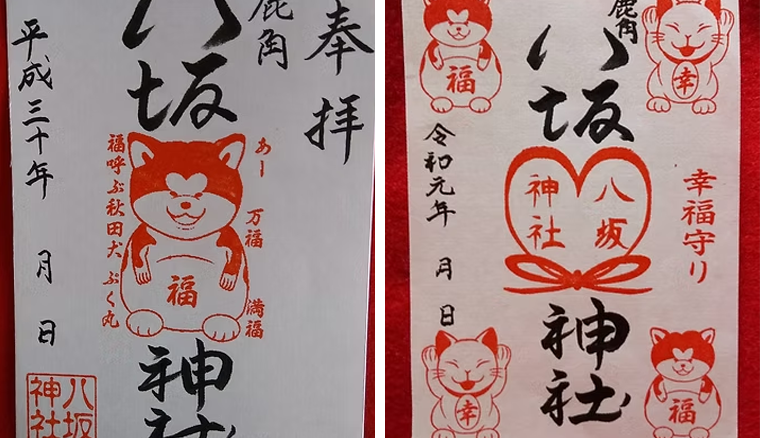 奉拝
鹿角
八坂
神社
平成三十年 月 日
あー 万福 満福
福
福呼ぶ秋田犬 ぷく丸
八坂
神社
鹿角
八坂
神社
令和元年 月 日
幸福守り
八坂
神社
福
幸
幸
福